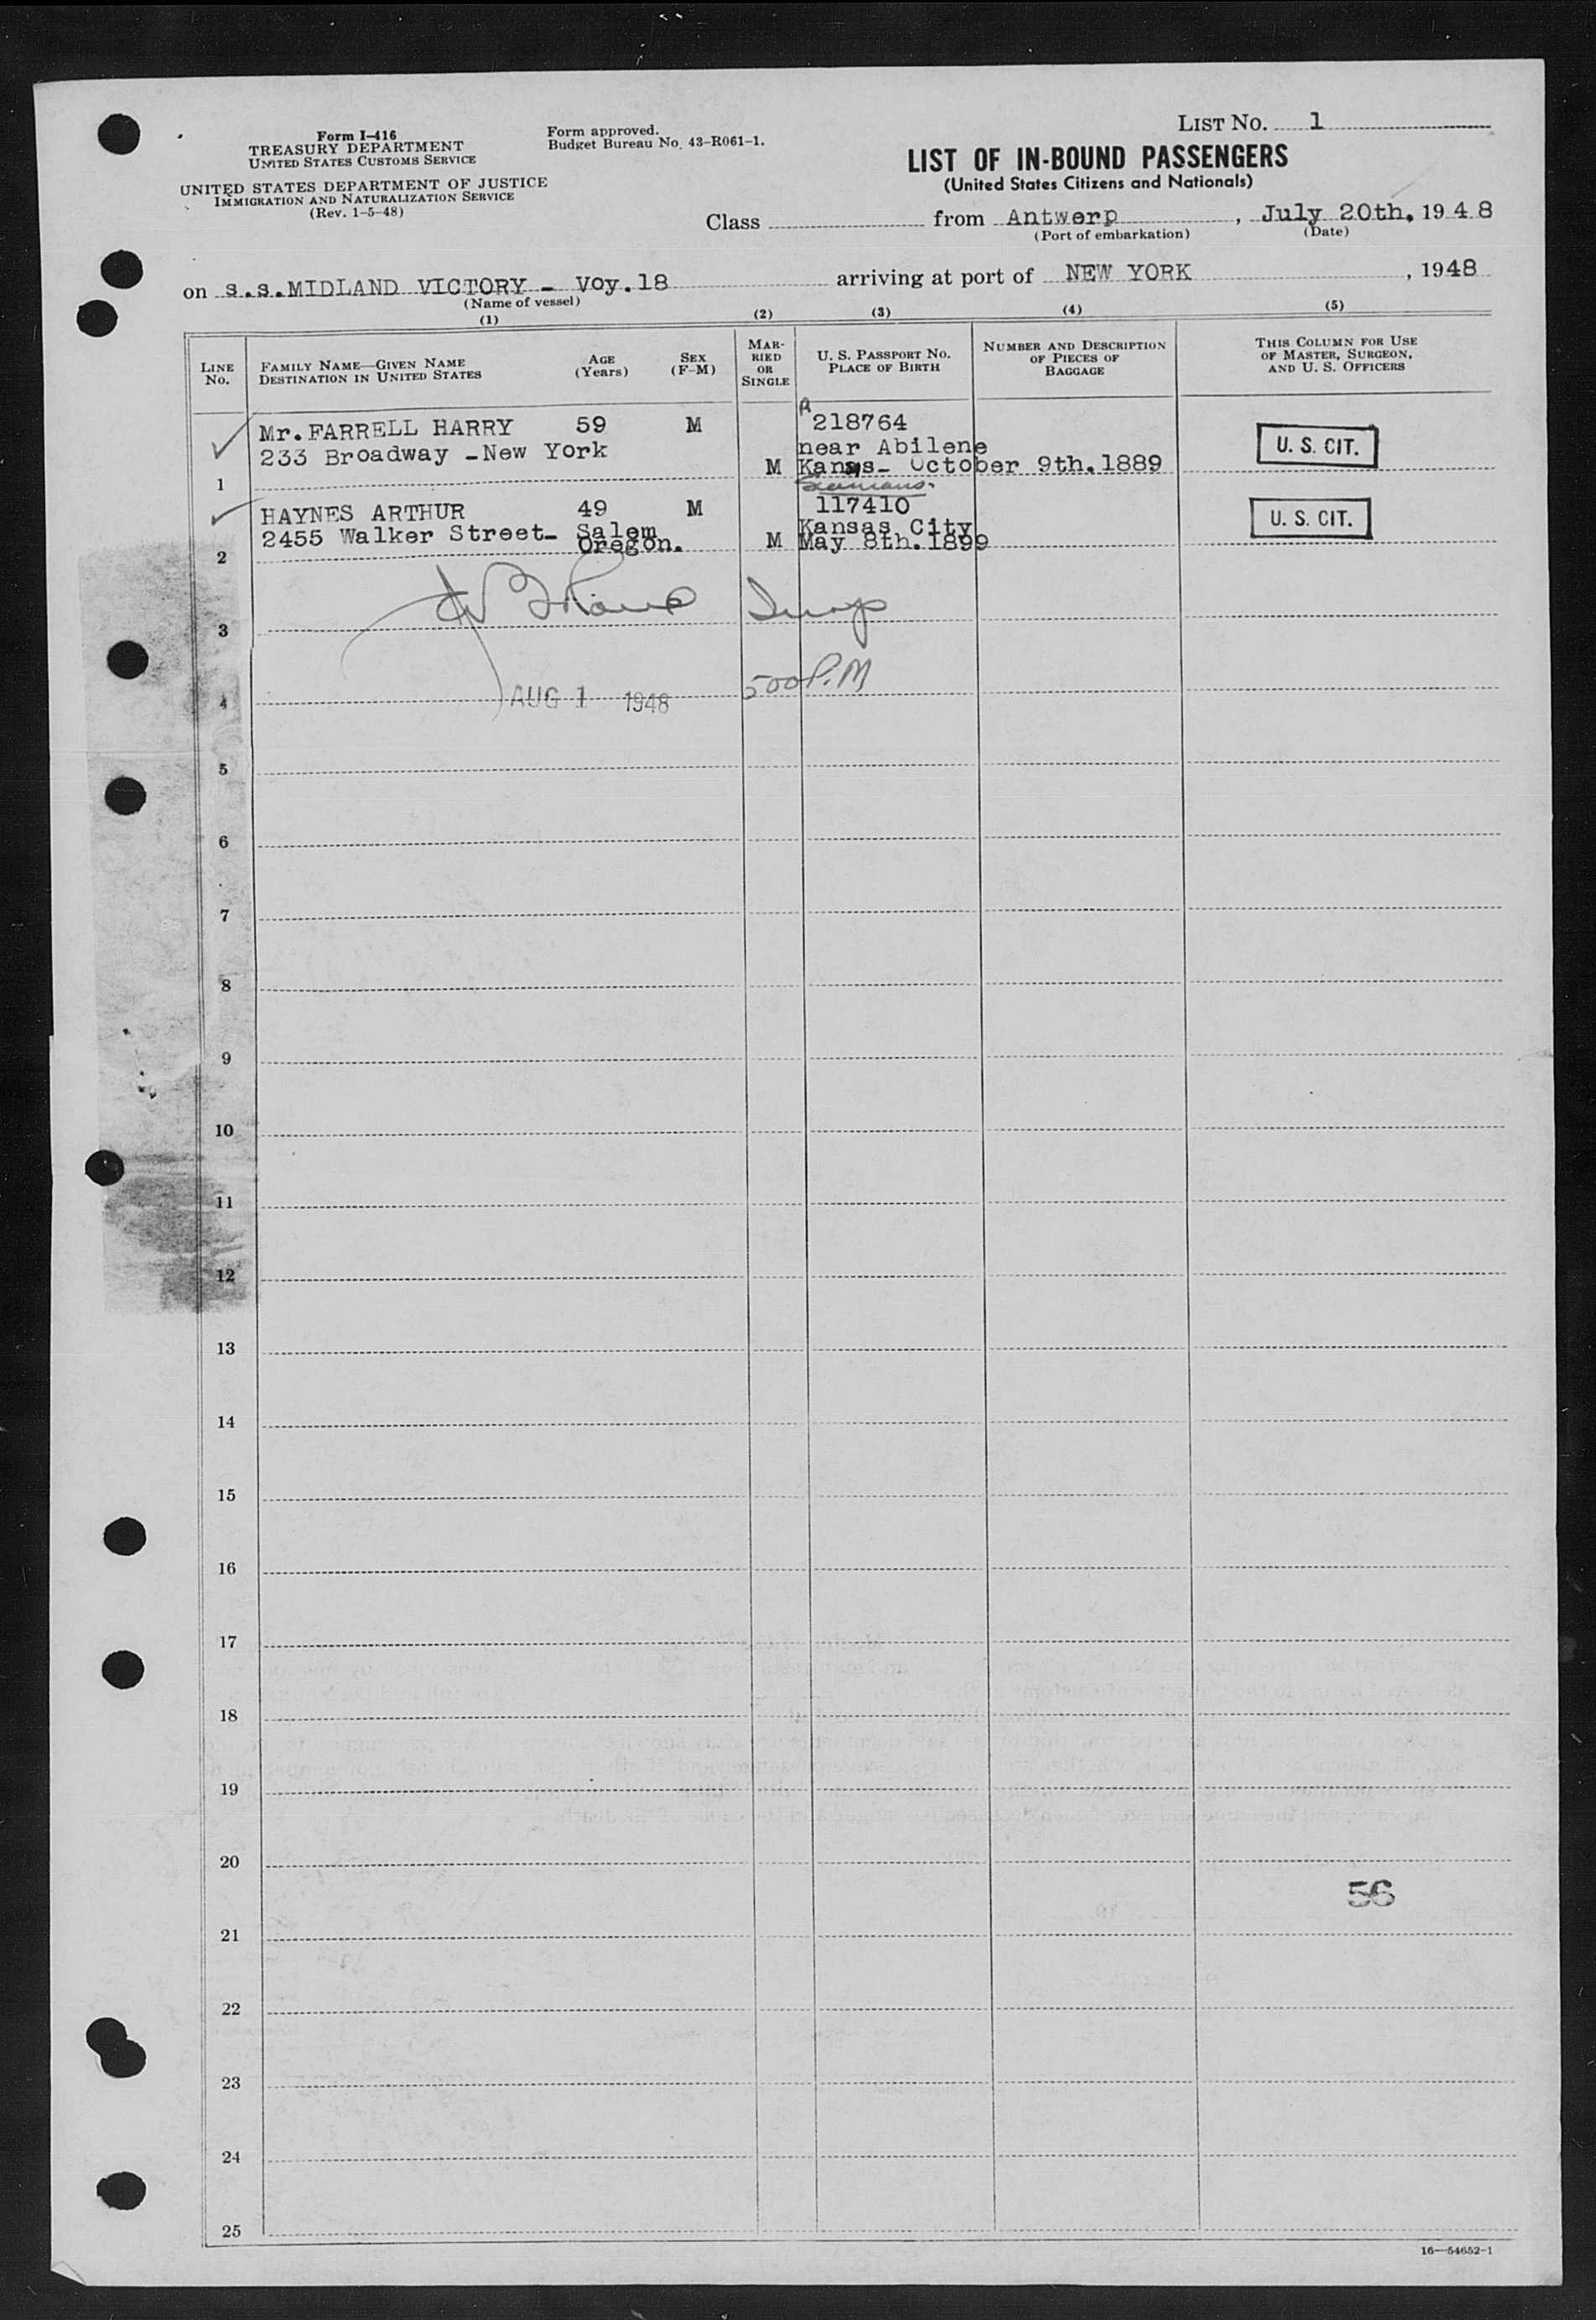 Form I-416
TREASURY DEPARTMENT
UNITED STATES CUSTOMS SERVICE
UNITED STATES DEPARTMENT OF JUSTICE
IMMIGRATION AND NATURALIZATION SERVICE
(Rev. 1-5-48)
Form approved.
Budget Bureau No. 43-R061-1.
LIST NO. 1
LIST OF IN-BOUND PASSENGERS
(United States Citizens and Nationals)
Class from Antwerp, July 20th, 1948
(Port of embarkation) (Date)
on s.s.MIDLAND VICTORY - Voy.18 arriving at port of NEW YORK, 1948
(Name of vessel)
(1) (2) (3) (4) (5)
LINE No.
FAMILY NAME—GIVEN NAME
DESTINATION IN UNITED STATES
AGE (Years)
SEX (F-M)
MARRIED OR SINGLE
U. S. PASSPORT NO.
PLACE OF BIRTH
NUMBER AND DESCRIPTION OF PIECES OF BAGGAGE
THIS COLUMN FOR USE OF MASTER, SURGEON, AND U. S. OFFICERS
Mr. FARRELL HARRY 59 M 218764
233 Broadway -New York near Abilene
1 M Kansas- October 9th.1889
U. S. CIT.
HAYNES ARTHUR 49 M 117410
2455 Walker Street- Salem Oregon. Kansas City
2 M May 8th.1899
U. S. CIT.
3
4 AUG 1 1948 500 P.M
5
6
7
8
9
10
11
12
13
14
15
16
17
18
19
20
56
21
22
23
24
25
16—54652-1